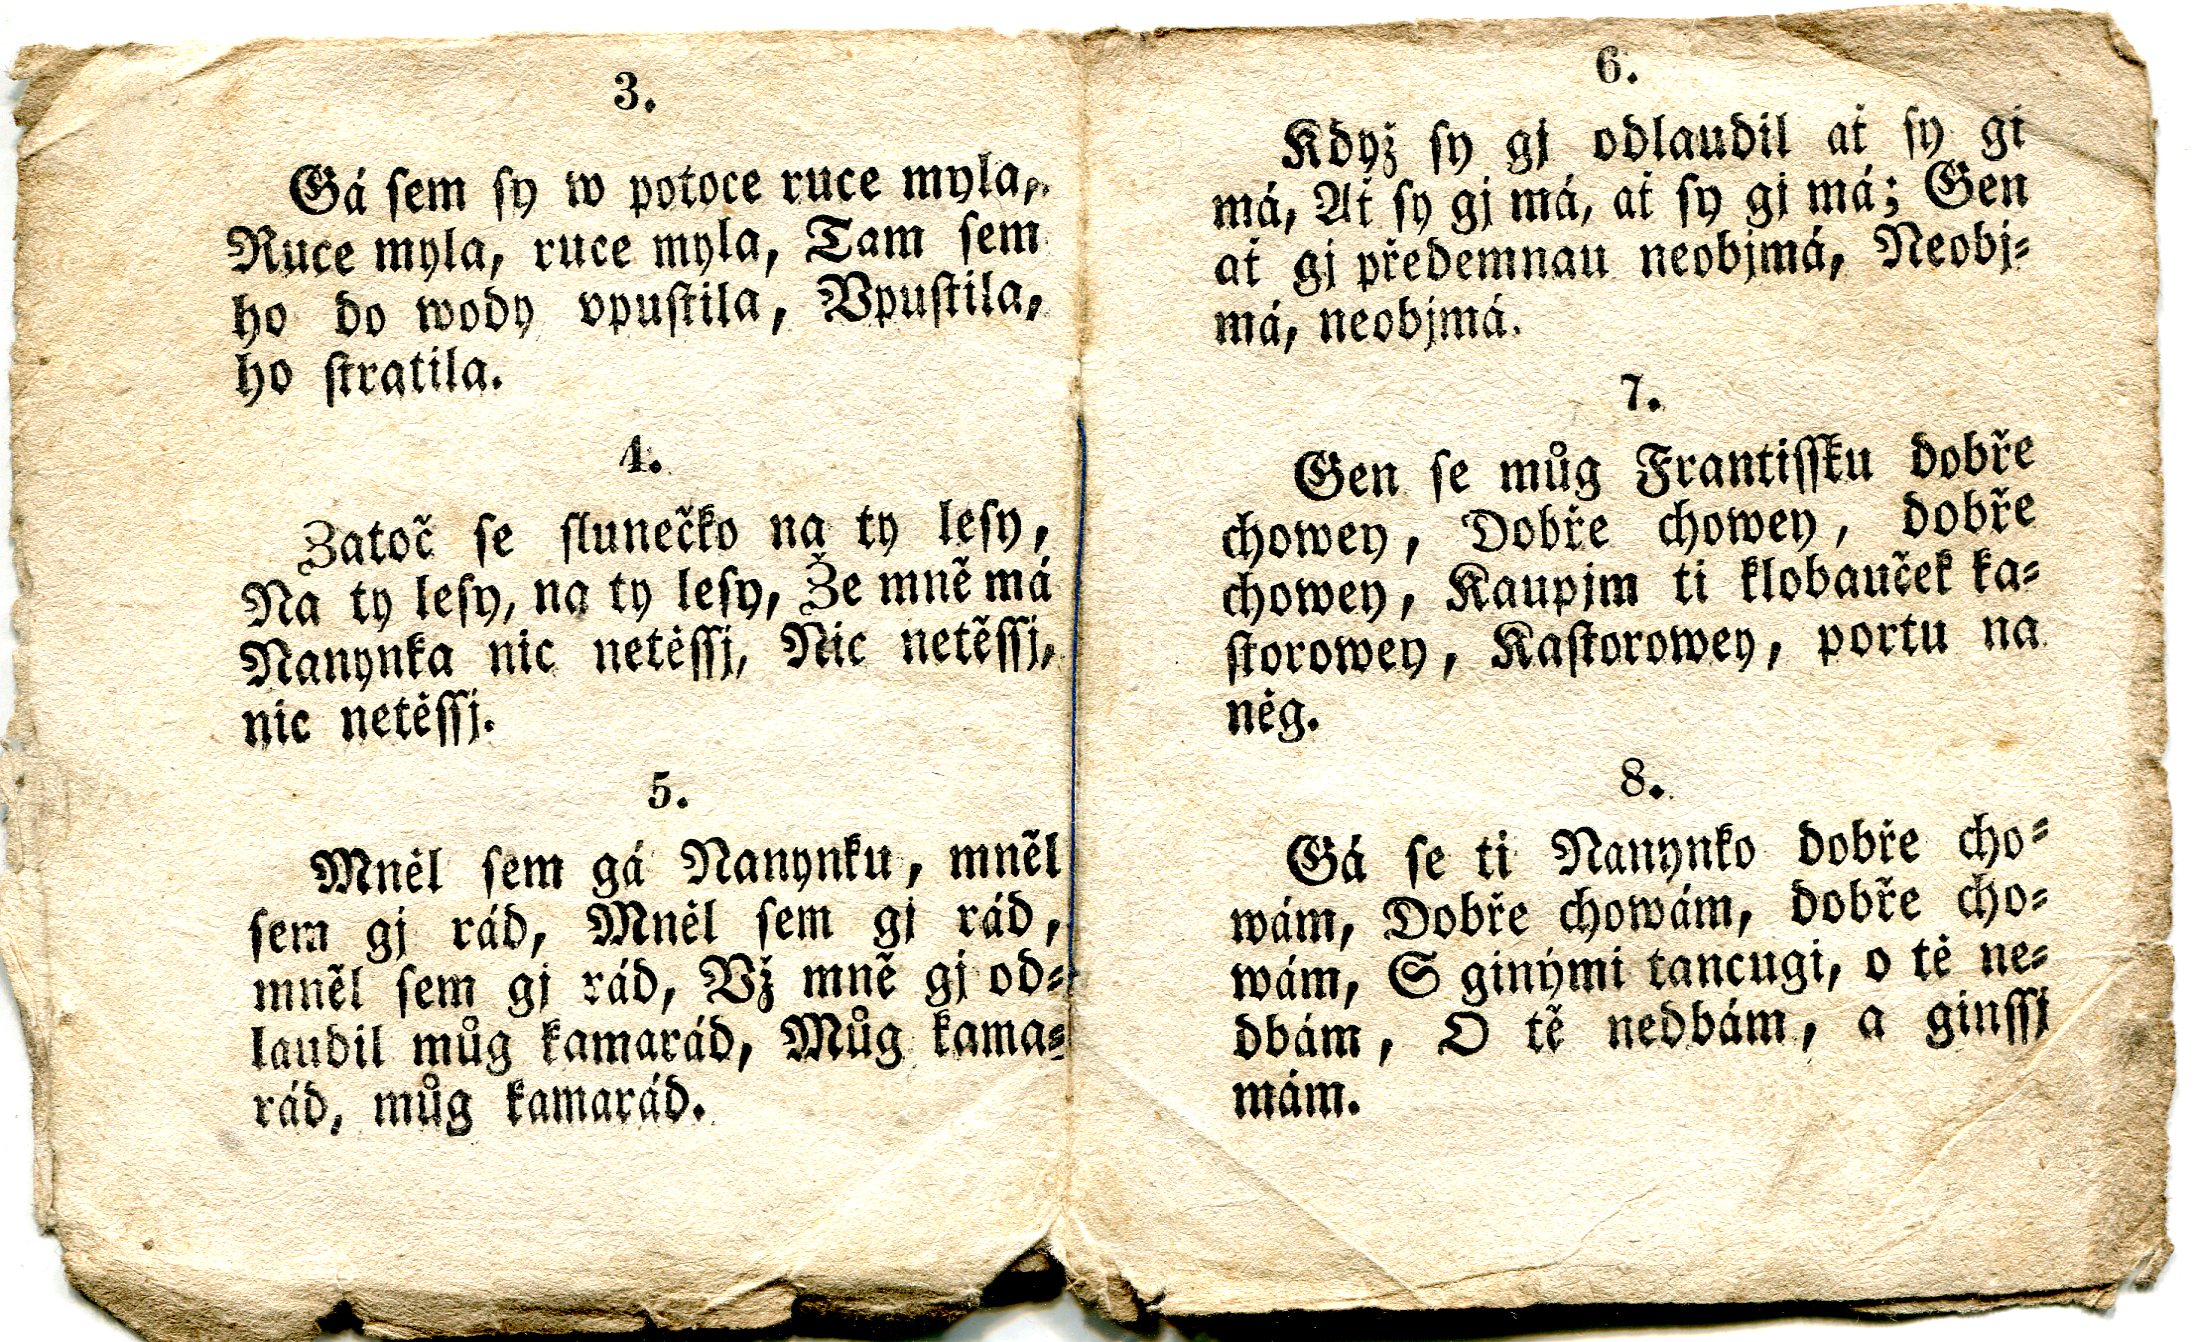 3.
Gá ſem ſy w potoce ruce myla,
Ruce myla, ruce myla, Tam ſem
ho do wody vpuſtila, Vpuſtila,
ho ſtratila.
4.
Zatoč ſe ſlunečko na ty leſy,
Na ty leſy, na ty leſy, Že mně má
Nanynka nic netěſſj, Nic netěſſj,
nic netěſſj.
5.
Mněl ſem gá Nanynku, mněl
ſem gj rád, Mněl ſem gj rád,
mněl ſem gj rád, Vž mně gj od⸗
laudil můg kamarád, Můg kama⸗
rád, můg kamarád.
6.
Když ſy gj odlaudil ať ſy gi
má, Ať ſy gj má, ať ſy gj má; Gen
ať gj předemnau neobjmá, Neobj⸗
má, neobjmá.
7.
Gen ſe můg Frantiſſku dobře
chowey, Dobře chowey, dobře
chowey, Kaupjm ti klobauček ka⸗
ſtorowey, Kaſtorowey, portu na
něg.
8.
Gá ſe ti Nanynko dobře cho⸗
wám, Dobře chowám, dobře cho⸗
wám, S ginými tancugi, o tě ne⸗
dbám, O tě nedbám, a ginſſj
mám.